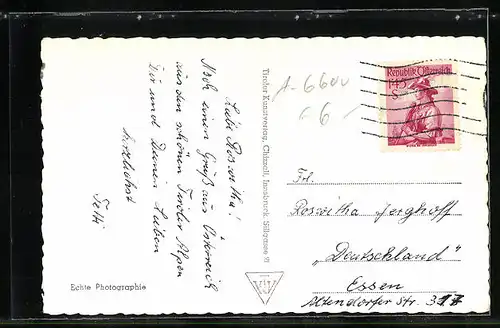 Liebe Roswitha!
Noch einen Gruß aus Österreich
aus den schönen Tiroler Alpen
Dir und Deinen Lieben
herzlichst
Echte Photographie
Tiroler Kunstverlag, Chizzali, Innsbruck, Sillgasse
A-6600
-6-
Republik Österreich
1.45
S
Frl.
Roswitha Jerghoff
„Deutschland"
Essen
Altendorfer Str. 317